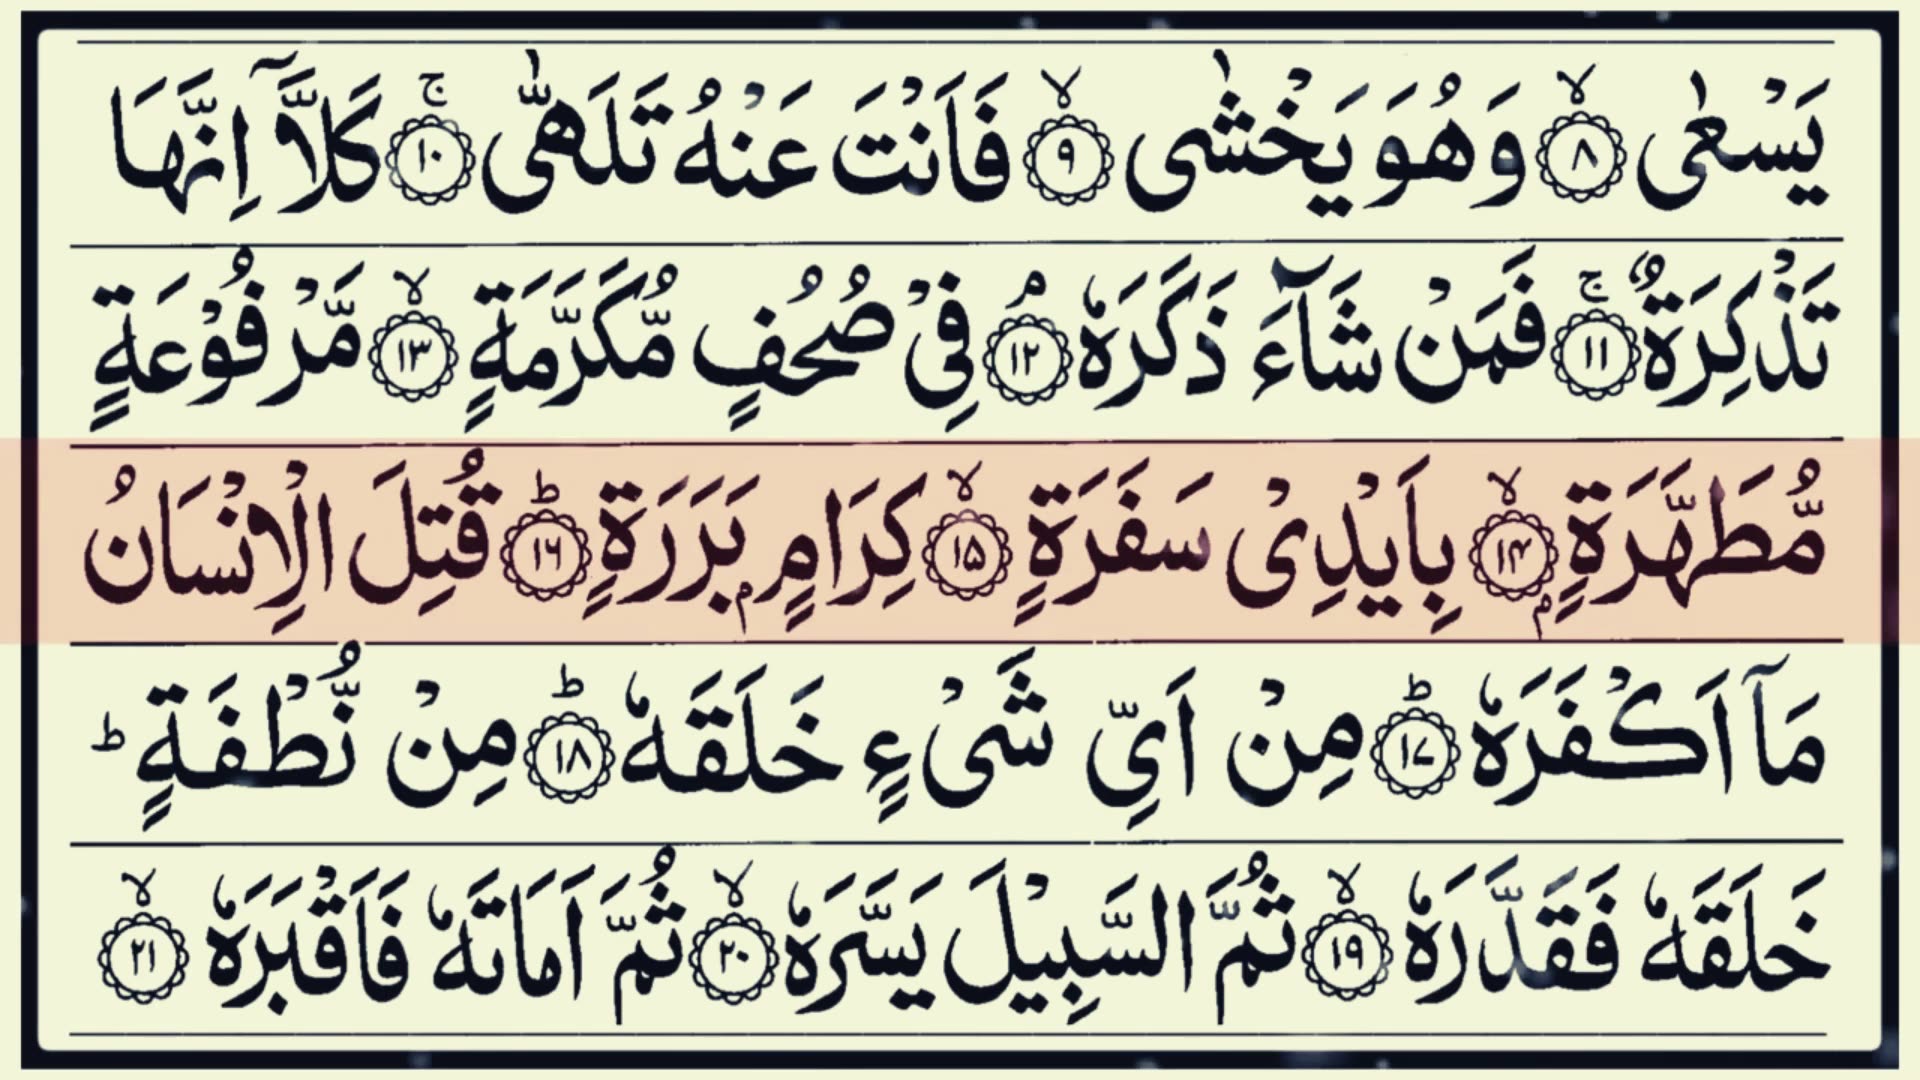 يَسْعٰى ۙ‏﴿۸﴾ وَهُوَ يَخْشٰى ۙ‏﴿۹﴾ فَاَنْتَ عَنْهُ تَلَهّٰى ۚ‏﴿۱۰﴾ كَلَّاۤ اِنَّهَا
تَذْكِرَةٌ ۚ‏﴿۱۱﴾ فَمَنْ شَآءَ ذَكَرَهٗ ۘ‏﴿۱۲﴾ فِىْ صُحُفٍ مُّكَرَّمَةٍ ۙ‏﴿۱۳﴾ مَّرْفُوْعَةٍ
مُّطَهَّرَةٍ ۭ ۙ‏﴿۱۴﴾ بِاَيْدِىْ سَفَرَةٍ ۙ‏﴿۱۵﴾ كِرَامٍ ۭ بَرَرَةٍ ؕ‏﴿۱۶﴾ قُتِلَ الْاِنْسَانُ
مَاۤ اَكْفَرَهٗ ؕ‏﴿۱۷﴾ مِنْ اَىِّ شَىْءٍ خَلَقَهٗ ؕ‏﴿۱۸﴾ مِنْ نُّطْفَةٍ ؕ
خَلَقَهٗ فَقَدَّرَهٗ ۙ‏﴿۱۹﴾ ثُمَّ السَّبِيْلَ يَسَّرَهٗ ۙ‏﴿۲۰﴾ ثُمَّ اَمَاتَهٗ فَاَقْبَرَهٗ ۙ‏﴿۲۱﴾